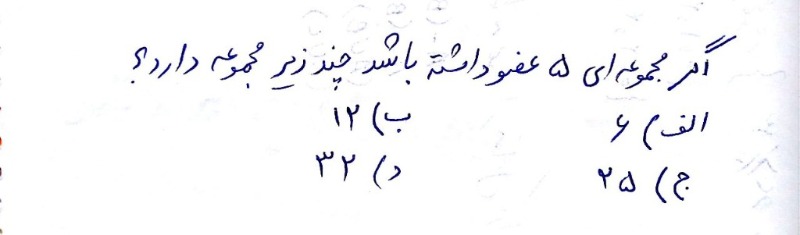 اگر مجموعه ای ۵ عضو داشته باشد چند زیر مجموعه دارد؟
الف) ۶ ب) ۱۲
ج) ۲۵ د) ۳۲